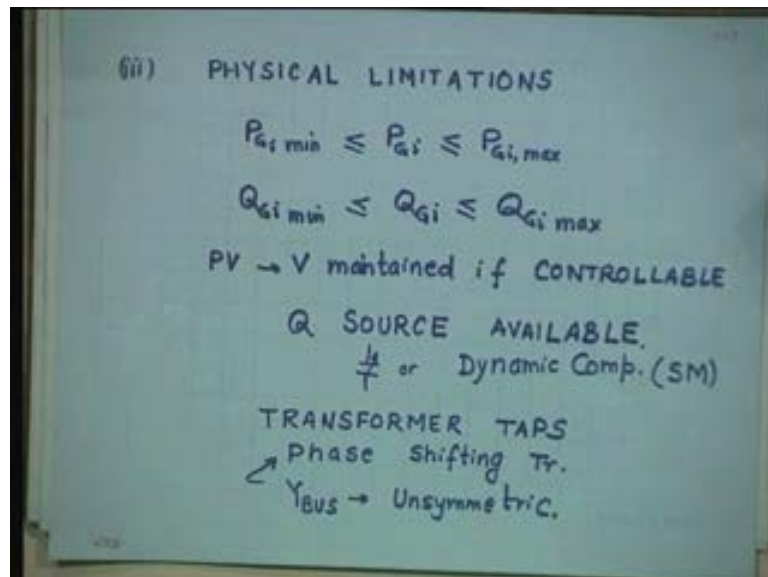 (iii) PHYSICAL LIMITATIONS
P_Gi min ≤ P_Gi ≤ P_Gi, max
Q_Gi min ≤ Q_Gi ≤ Q_Gi max
PV → V maintained if CONTROLLABLE
Q SOURCE AVAILABLE.
or Dynamic Comp. (SM)
TRANSFORMER TAPS
Phase Shifting Tr.
Y_BUS → Unsymmetric.